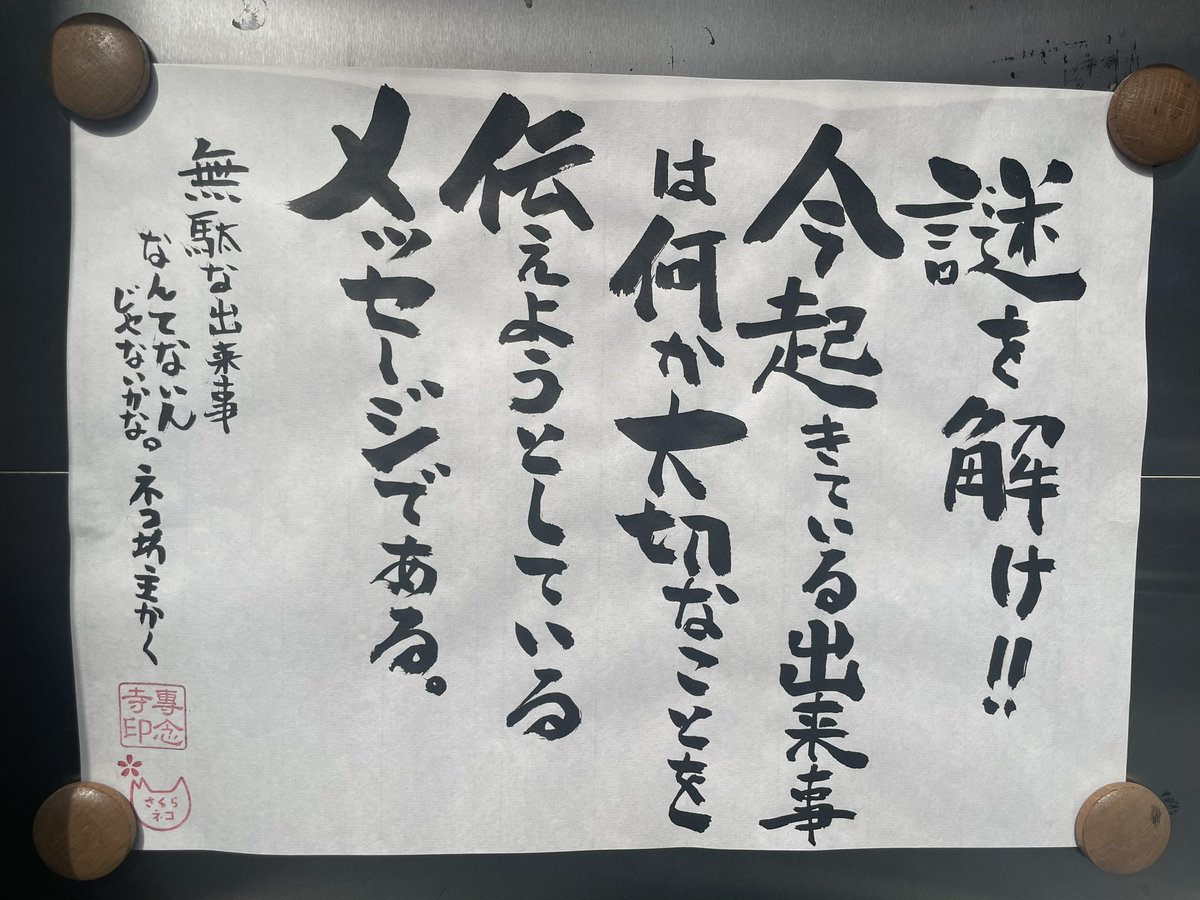 謎を解け!!
今起きている出来事
は何か大切なことを
伝えようとしている
メッセージである。
無駄な出来事
なんてないん
じゃないかな。ネコ坊主かく
專念
寺印
さくら
ネコ